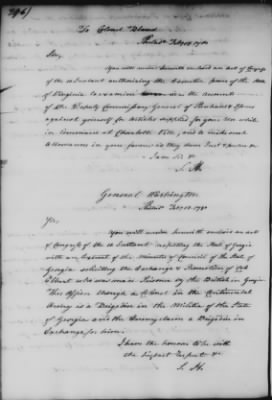 296/
To Colonel Bland
Philada Feby 12. 1781
Sir,
You will receive herewith enclosed an Act of Congress
of the 10 Instant authorizing the Executive power of the State
of Virginia to examine the Accounts
of the Deputy Commissary General of Purchases & Issues
against yourself for Articles supplied for your Use while
in Command at Charlotte Ville, and to make such
Allowances in your favour as they deem Just &
I am Sir &
S. H.
General Washington
Philad Feby 12. 1781
Sir,
You will receive herewith enclosed an act
of Congress of the 10 Instant respecting the State of Georgia
with an Extract of the Minutes of Council of the State of
Georgia soliciting the Exchange & Promotion of Col
Elbert who was made Prisoner by the British in Georgia
This Officer though a Colonel in the Continental
Army is a Brigadier in the Militia of the State
of Georgia and the Enemy claim a Brigadier in
Exchange for him.
I have the honour to be with
the highest respect &c
S. H.